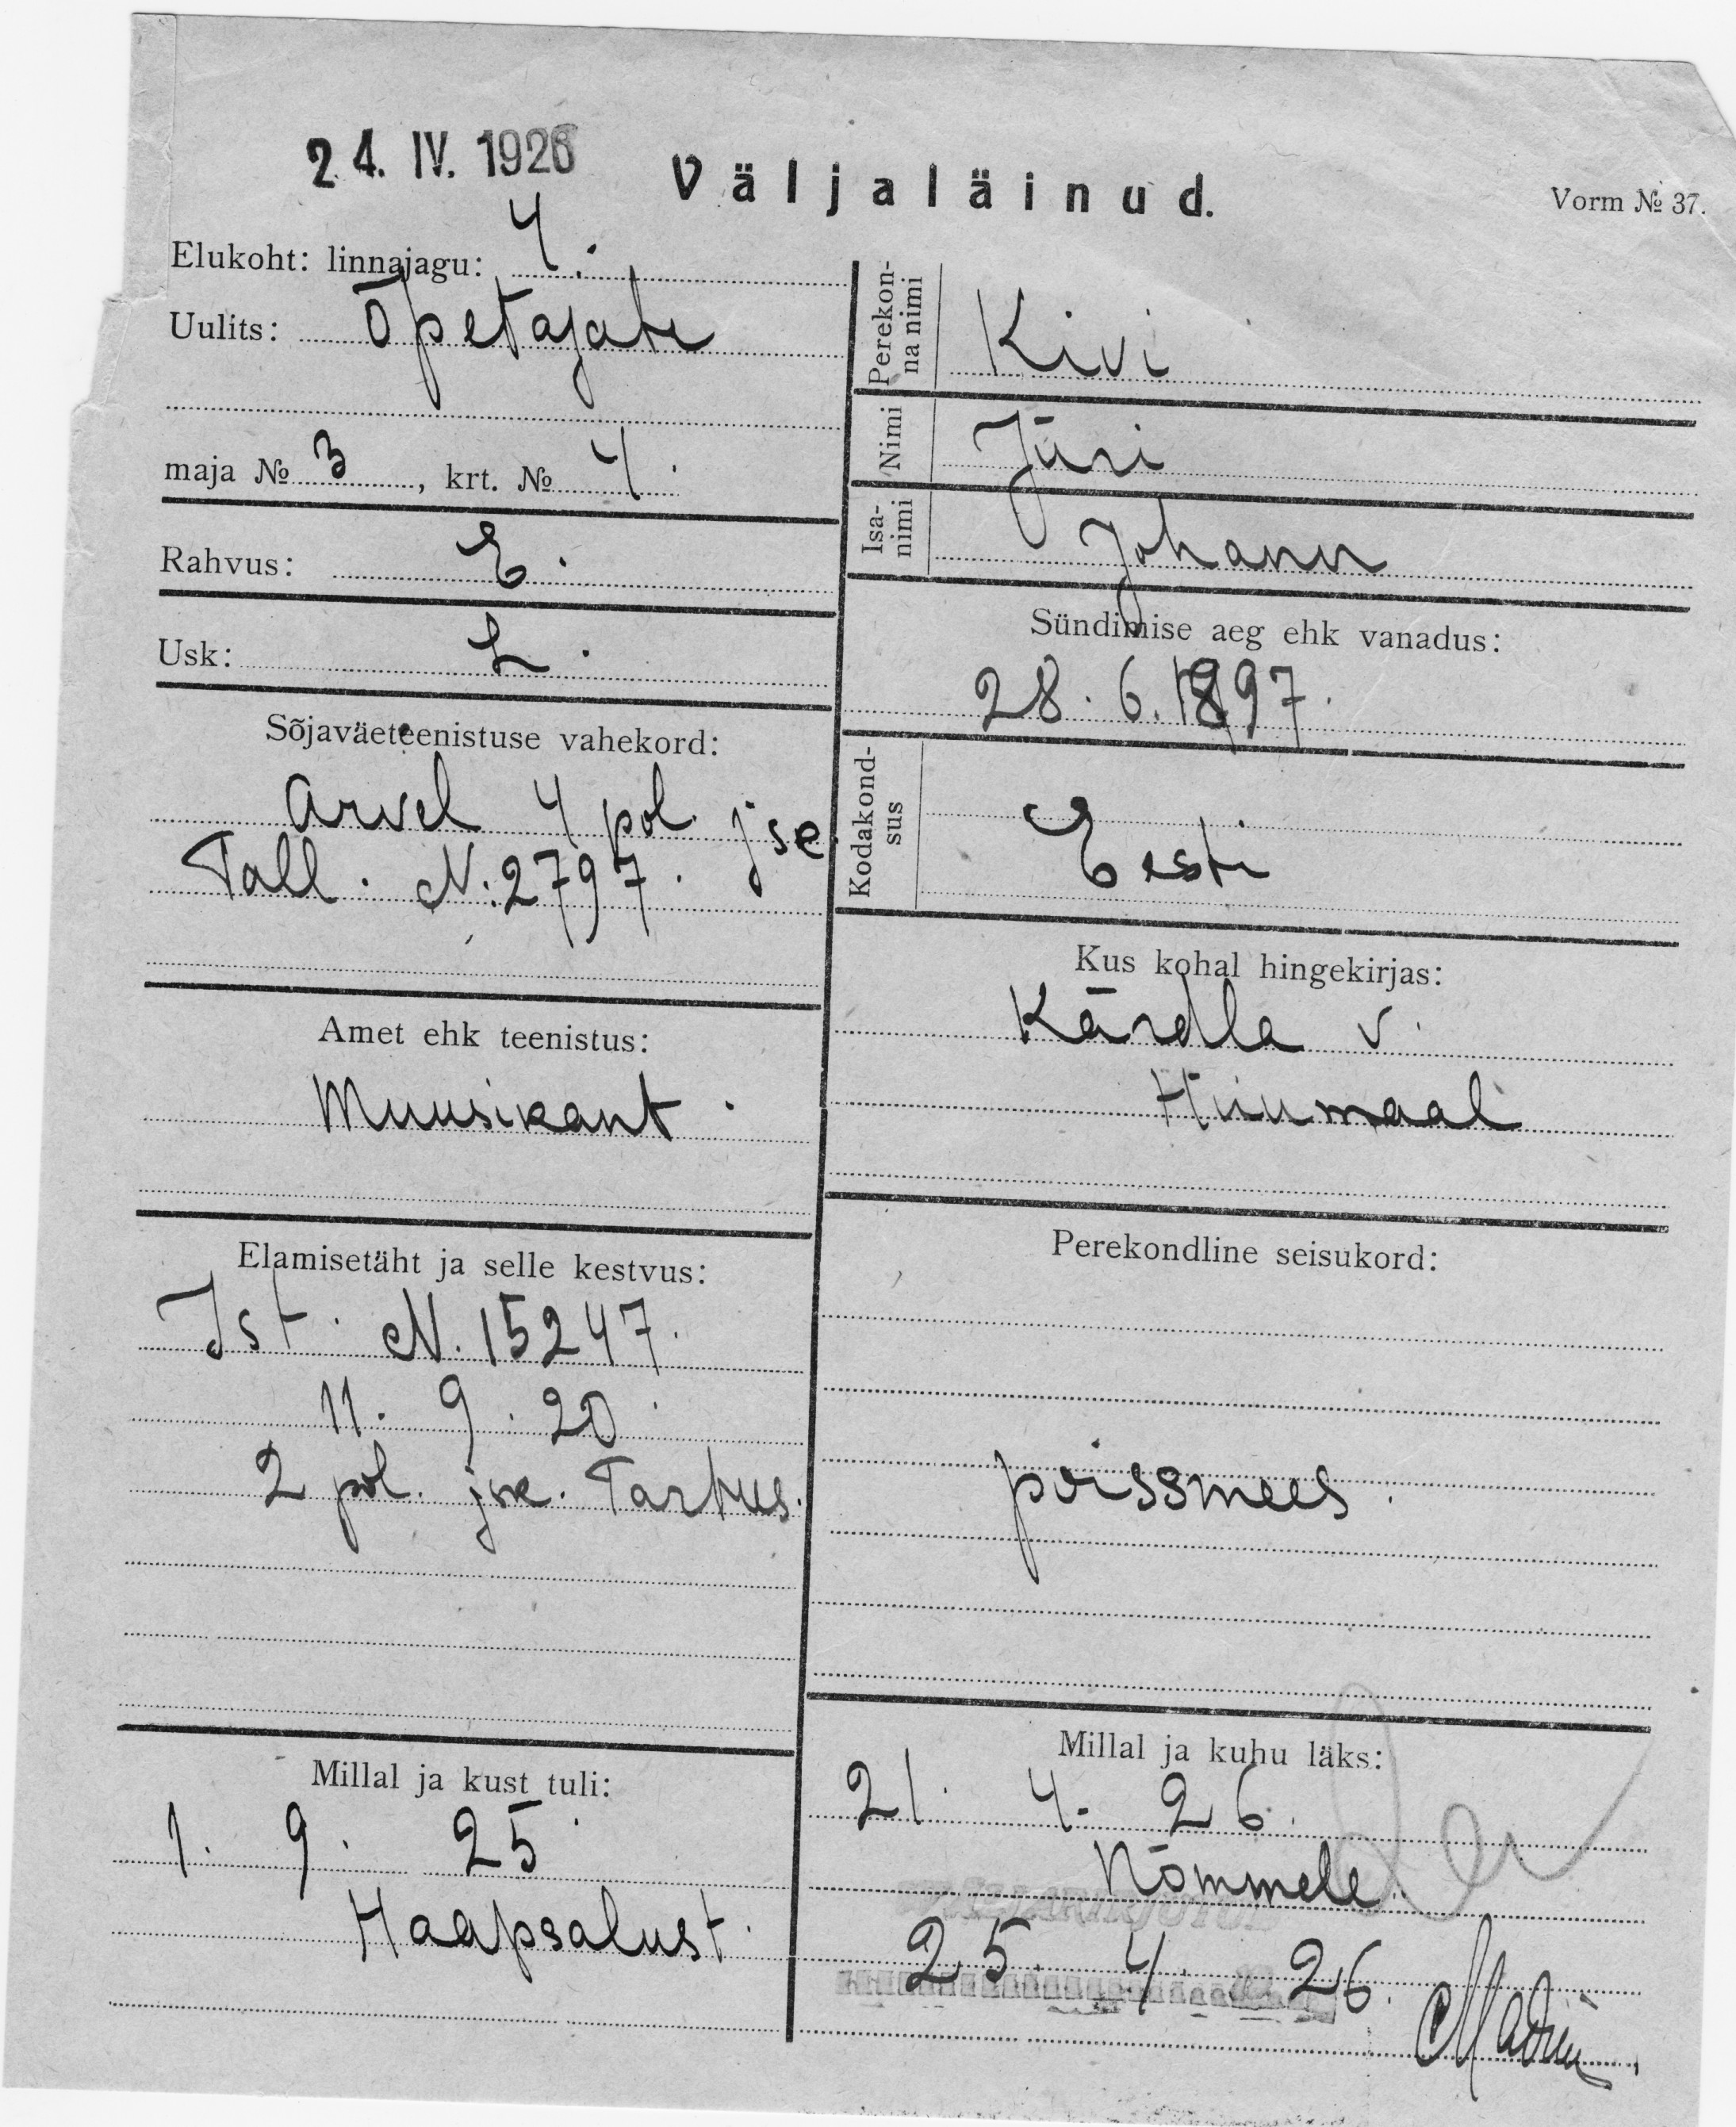 24. IV. 1926
Väljaläinud.
Vorm № 37.
Elukoht: linnajagu: 4.
Uulits: Õpetajate
maja № 3, krt. № 4.
Rahvus: E.
Usk: L.
Sõjaväeteenistuse vahekord:
Arvel 4 pol. jse.
Tall. N: 2797.
Amet ehk teenistus:
Muusikant.
Elamisetäht ja selle kestvus:
Ist. N. 15247.
11. 9. 20.
2 pol. jsk. Tartus.
Millal ja kust tuli:
1. 9. 25
Haapsalust.
Perekon-
na nimi
Kivi
Nimi
Jüri
Isa-
nimi
Johann
Sündimise aeg ehk vanadus:
28. 6. 1897.
Kodakond-
sus
Eesti
Kus kohal hingekirjas:
Kärdla v.
Hiiumaal
Perekondline seisukord:
poissmees.
Millal ja kuhu läks:
21. 4. 26.
Nõmmele.
25. 4. 26.